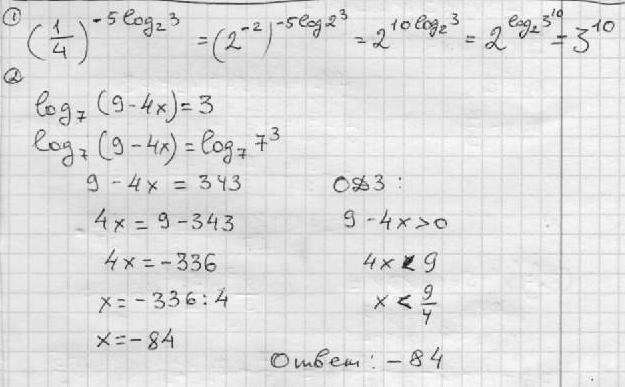 ① (1/4)^(-5log₂3) = (2⁻²)^(-5log₂3) = 2^(10log₂3) = 2^(log₂3¹⁰) = 3¹⁰
②
log₇(9-4x)=3
log₇(9-4x)=log₇7³
9-4x=343
4x=9-343
4x=-336
x=-336:4
x=-84
ОДЗ:
9-4x>0
4x<9
x<9/4
Ответ: -84